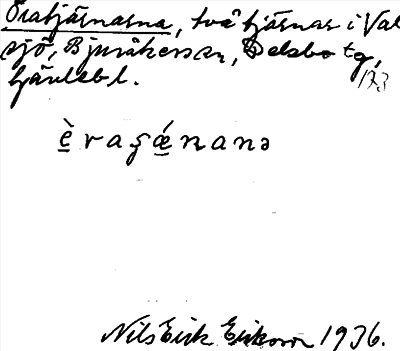 Öratjärnarna, två tjärnar i Val
sjö, Bjuråkers sn, Delsbo tg,
Gävlebl.
173
è r a ʂ ǽ n a n ə
Nils Erik Erikson 1936.